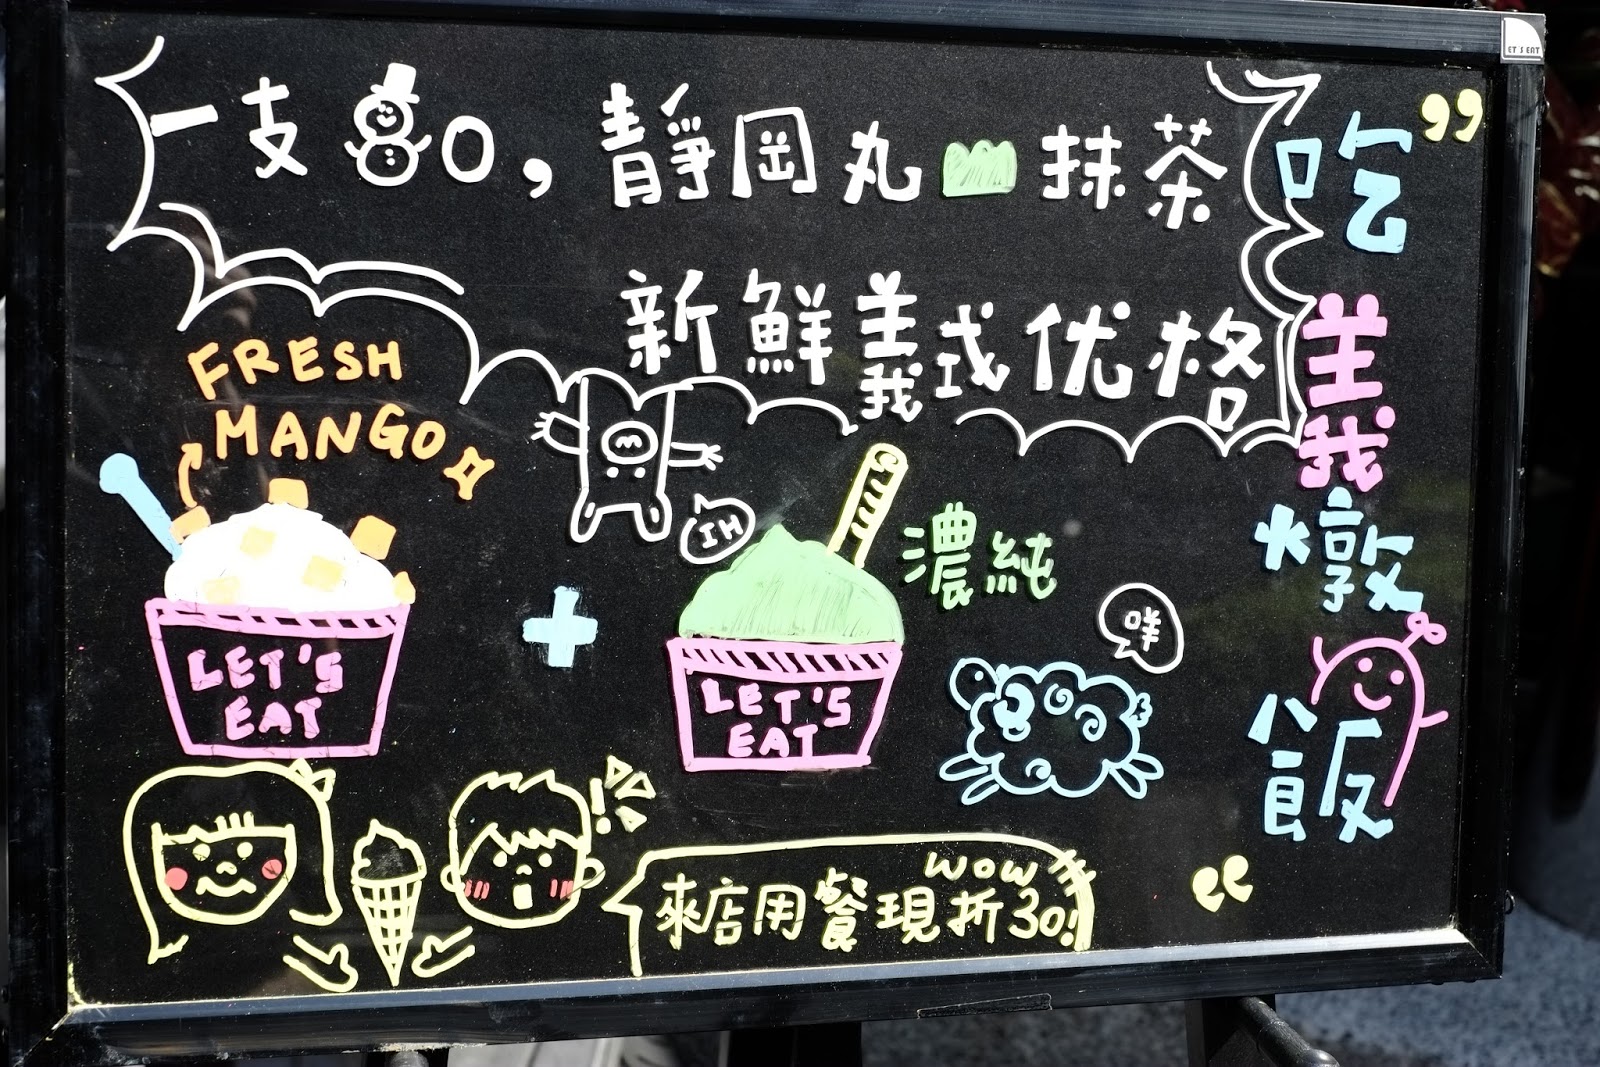 一支80,靜岡丸山抹茶
新鮮義式优格
吃義燉飯
FRESH
MANGO
HI
濃純
咩
LET'S
EAT
+
LET'S
EAT
WOW
來店用餐現折30!
ET'S EAT